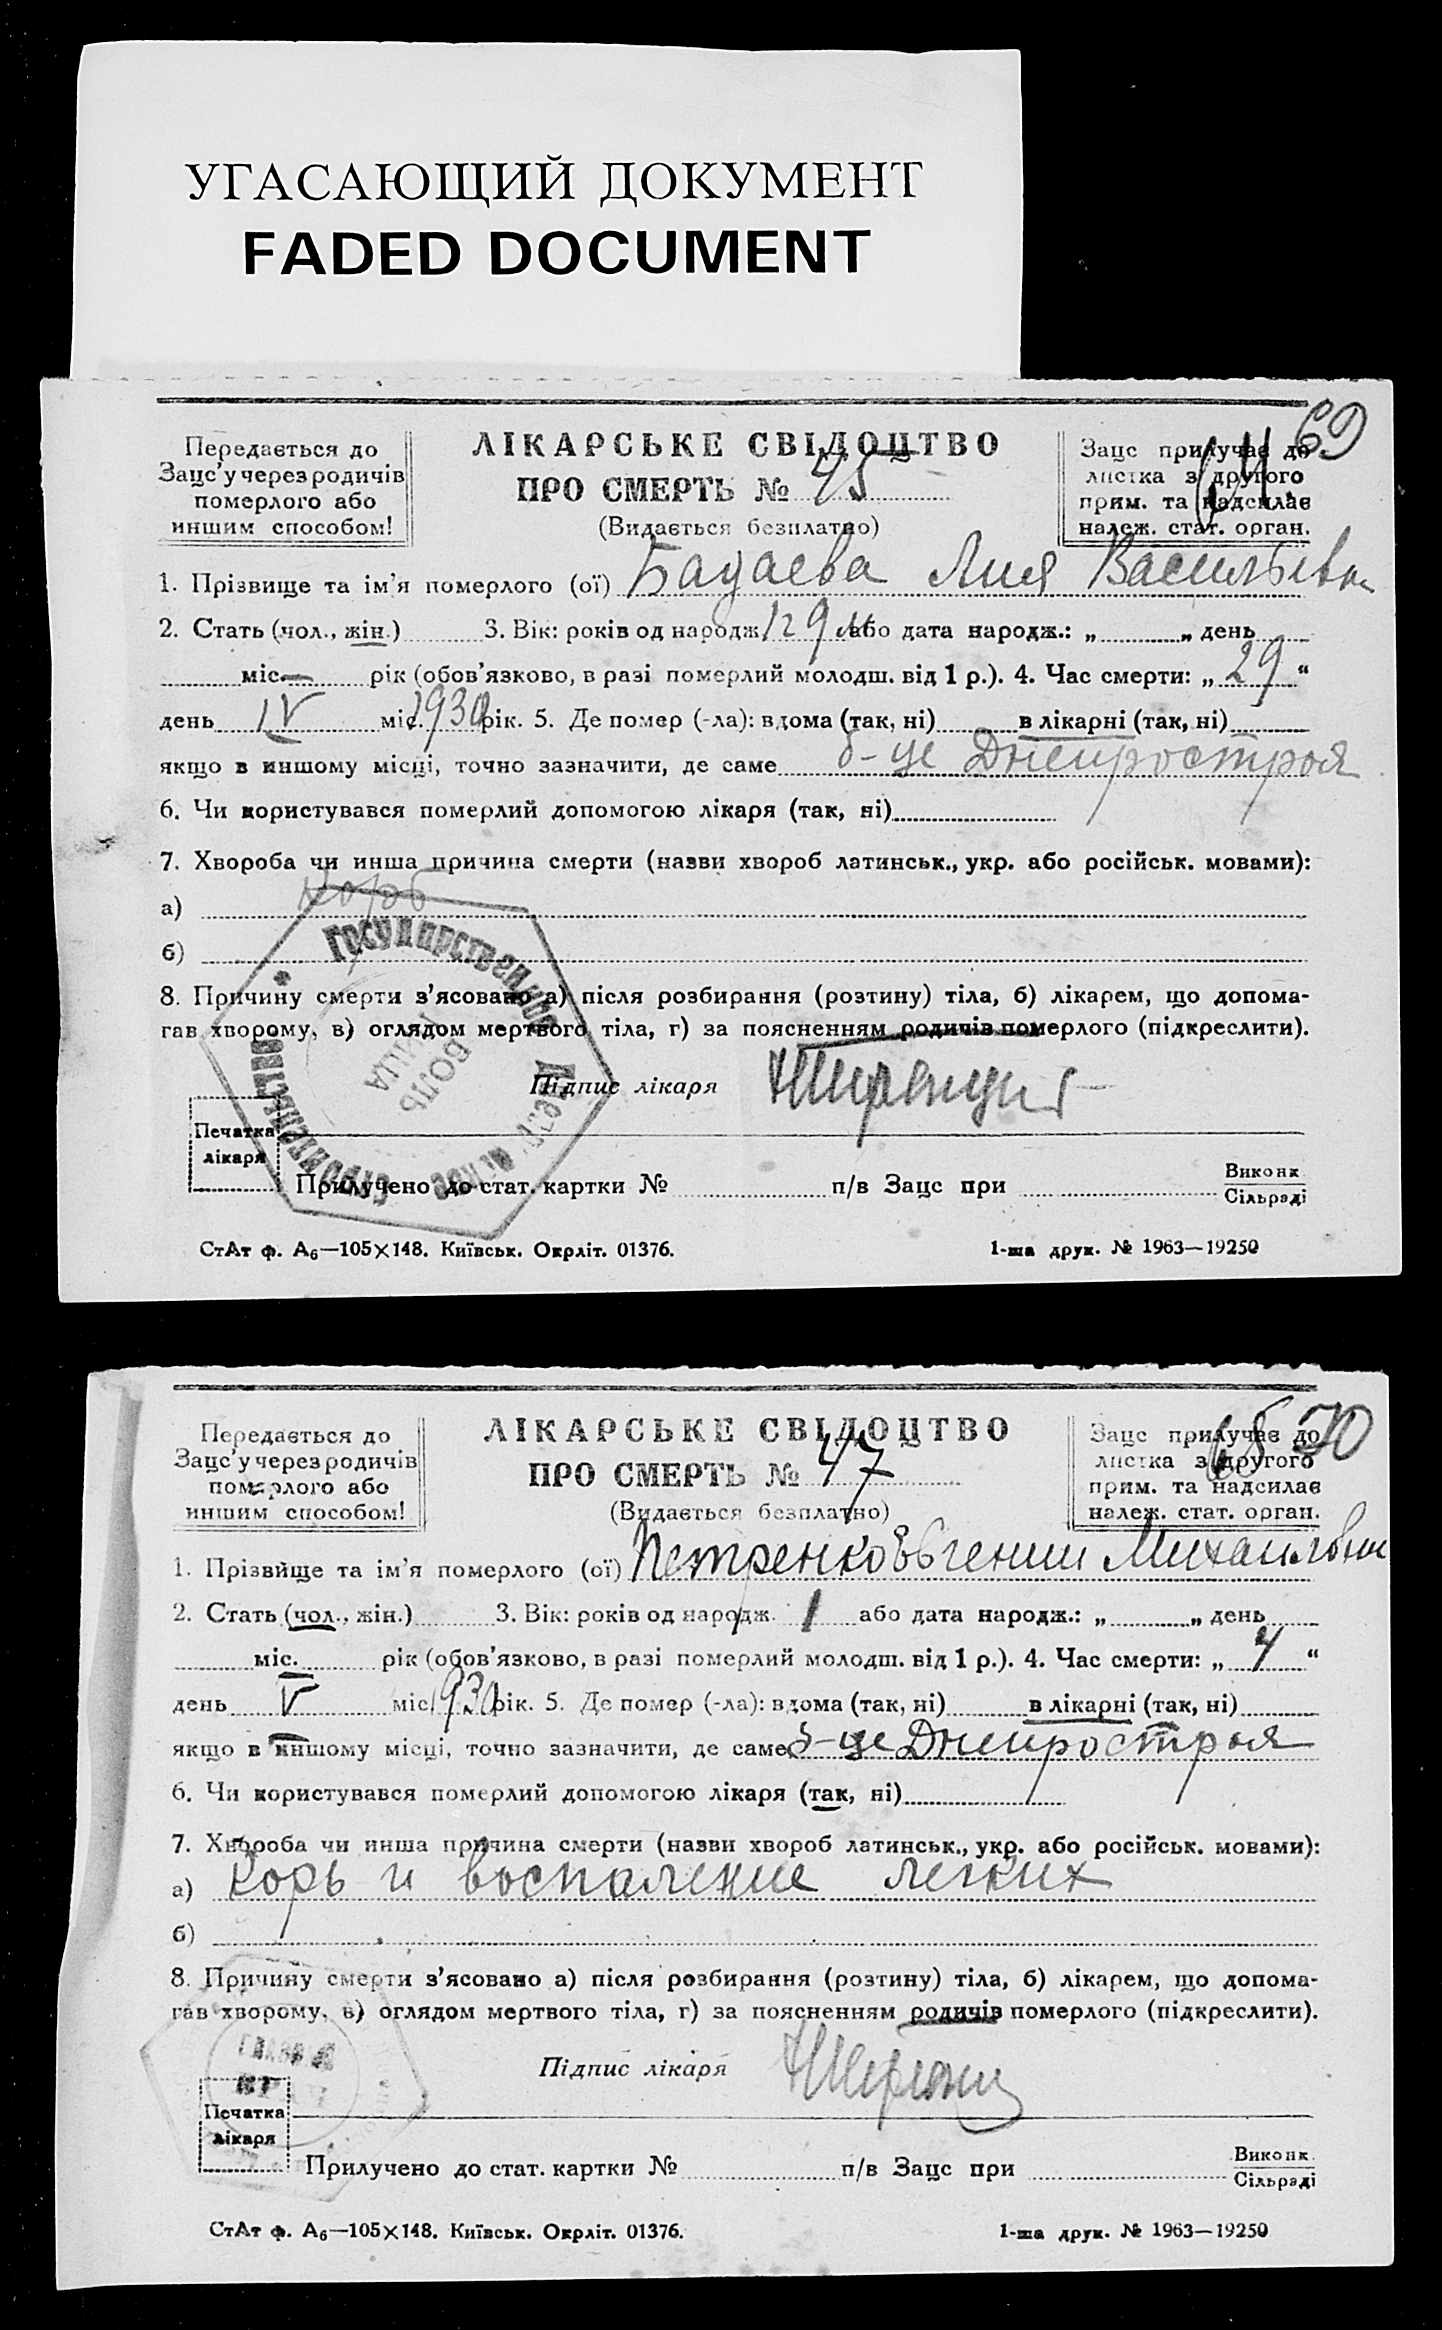 УГАСАЮЩИЙ ДОКУМЕНТ
FADED DOCUMENT
69
64
Передається до
Зацс'у через родичів
померлого або
иншим способом!
ЛІКАРСЬКЕ СВІДОЦТВО
ПРО СМЕРТЬ № 45
(Видається безплатно)
Зацс прилучає до
листка з другого
прим. та надсилає
належ. стат. орган.
1. Прізвище та ім'я померлого (ої) Бадаева Лия Васильевн
2. Стать (чол., жін.) 3. Вік: років од народж. 1 г 9 м або дата народж.: „ „ день
міс. — рік (обов'язково, в разі померлий молодш. від 1 р.). 4. Час смерти: „ 29 “
день IV міс. 1930 рік. 5. Де помер (-ла): вдома (так, ні) в лікарні (так, ні)
якщо в иншому місці, точно зазначити, де саме б-це Днепростроя
6. Чи користувався померлий допомогою лікаря (так, ні)
7. Хвороба чи инша причина смерти (назви хвороб латинськ., укр. або російськ. мовами):
а) Корь
б)
8. Причину смерти з'ясовано а) після розбирання (розтину) тіла, б) лікарем, що допома-
гав хворому, в) оглядом мертвого тіла, г) за поясненням родичів померлого (підкреслити).
Государственное Днепровское строительство
БОЛЬ
НИЦА
Підпис лікаря
Печатка
лікаря
Прилучено до стат. картки № п/в Зацс при Виконк
Сільраді
СтАт ф. А6—105×148. Київськ. Окрліт. 01376. 1-ша друк. № 1963—19250
65 70
Передається до
Зацс'у через родичів
померлого або
иншим способом!
ЛІКАРСЬКЕ СВІДОЦТВО
ПРО СМЕРТЬ № 47
(Видається безплатно)
Зацс прилучає до
листка з другого
прим. та надсилає
належ. стат. орган.
1. Прізвище та ім'я померлого (ої) Петренко Евгении Михаильвич
2. Стать (чол., жін.) 3. Вік: років од народж. 1 або дата народж.: „ „ день
міс. рік (обов'язково, в разі померлий молодш. від 1 р.). 4. Час смерти: „ 4 “
день V міс. 1930 рік. 5. Де помер (-ла): вдома (так, ні) в лікарні (так, ні)
якщо в иншому місці, точно зазначити, де саме б-це Днепростроя
6. Чи користувався померлий допомогою лікаря (так, ні)
7. Хвороба чи инша причина смерти (назви хвороб латинськ., укр. або російськ. мовами):
а) Корь и воспаление легких
б)
8. Причину смерти з'ясовано а) після розбирання (розтину) тіла, б) лікарем, що допома-
гав хворому, в) оглядом мертвого тіла, г) за поясненням родичів померлого (підкреслити).
Підпис лікаря
Печатка
лікаря
Прилучено до стат. картки № п/в Зацс при Виконк.
Сільраді
СтАт ф. А6—105×148. Київськ. Окрліт. 01376. 1-ша друк. № 1963—19250